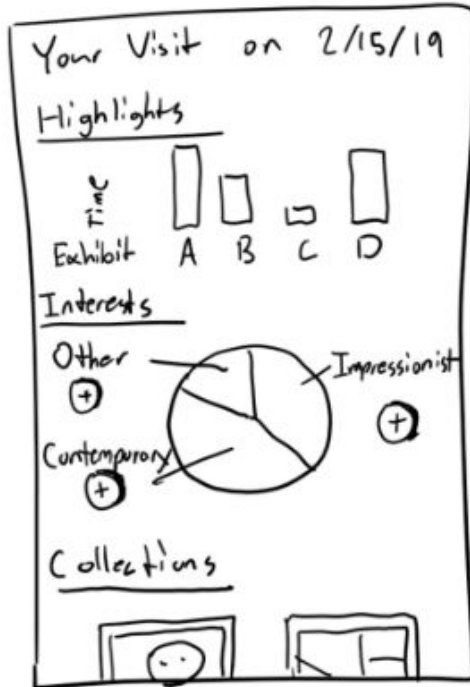 Your Visit on 2/15/19
Highlights
Time
Exhibit A B C D
Interests
Other
Impressionist
+
+
Contemporary
+
Collections